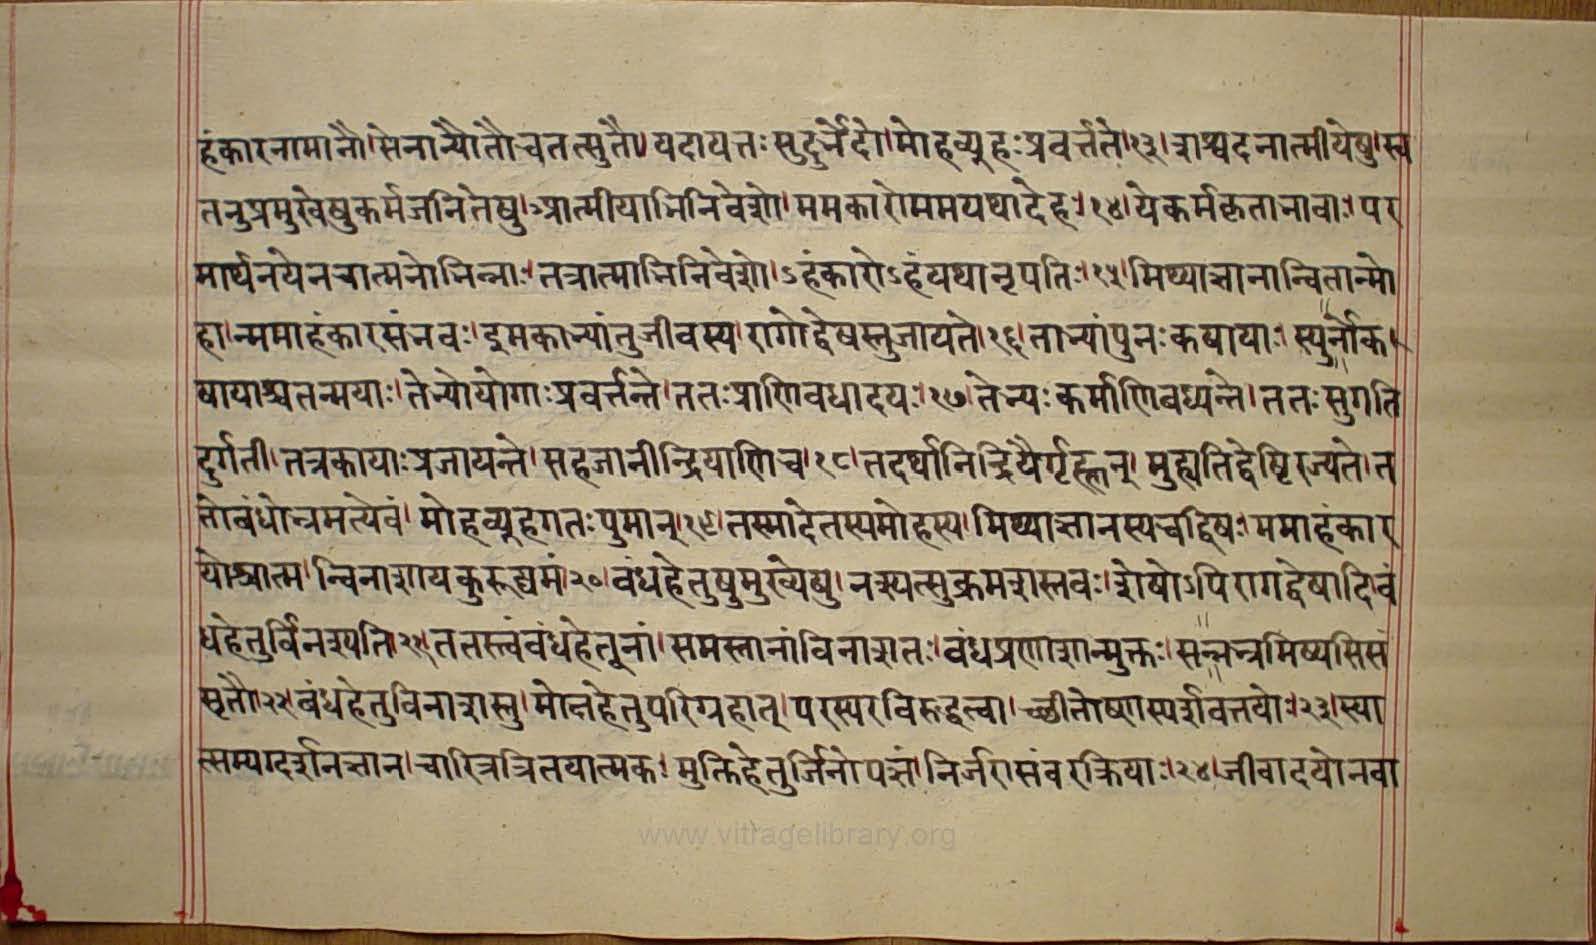 हंकारनामानौ।सेनान्यौतौचतत्सुतौ॥यदायत्तःसुदुर्भेदो।मोहव्यूहःप्रवर्त्तते।१३।शश्वदनात्मीयेषु।स्व
तनुप्रमुखेषुकर्मजनितेषु।आत्मीयाभिनिवेशो।ममकारोममयथादेहः।१४।येकर्मकृताभावाः।पर
मार्थनयेनचात्मनोभिन्नाः।तत्रात्माभिनिवेशो।ऽहंकारोऽहंयथानृपतिः।१५।मिथ्याज्ञानान्वितान्मो
हा।न्ममाहंकारसंभवः।इमकाभ्यांतुजीवस्य।रागोद्वेषस्तुजायते।१६।ताभ्यांपुनःकषायाः।स्युर्नोक
षायाश्चतन्मयाः।तेभ्योयोगाःप्रवर्त्तन्ते।ततःप्राणिवधादयः।१७।तेभ्यःकर्माणिबध्यन्ते।ततःसुगति
दुर्गती।तत्रकायाःप्रजायन्ते।सहजानीन्द्रियाणिच।१८।तदर्थानिन्द्रियैर्गृह्णन्।मुह्यतिद्वेष्टिरज्यते।त
तोबंधोभ्रमत्येवं।मोहव्यूहगतःपुमान्।१९।तस्मादेतस्यमोहस्य।मिथ्याज्ञानस्यचद्विषः।ममाहंकार
योश्चात्म।न्विनाशायकुरूद्यमं।२०।बंधहेतुषुमुख्येषु।नश्यत्सुक्रमशस्तव।शेषोऽपिरागद्वेषादिबं
धहेतुर्विनश्यति।२१।ततस्त्वंबंधहेतूनां।समस्तानांविनाशतः।बंधप्रणाशान्मुक्तः।सन्नभ्रमिष्यसिसं
सृतौ।२२।बंधहेतुविनाशस्तु।मोक्षहेतुपरिग्रहात्।परस्परविरुद्धत्वा।च्छीतोष्णस्पर्शवत्तयोः।२३।स्या
त्सम्यग्दर्शनज्ञान।चारित्रत्रितयात्मकः।मुक्तिहेतुर्जिनोपज्ञं।निर्जरासंवरक्रियाः।२४।जीवादयोनवा
www.vitragelibrary.org